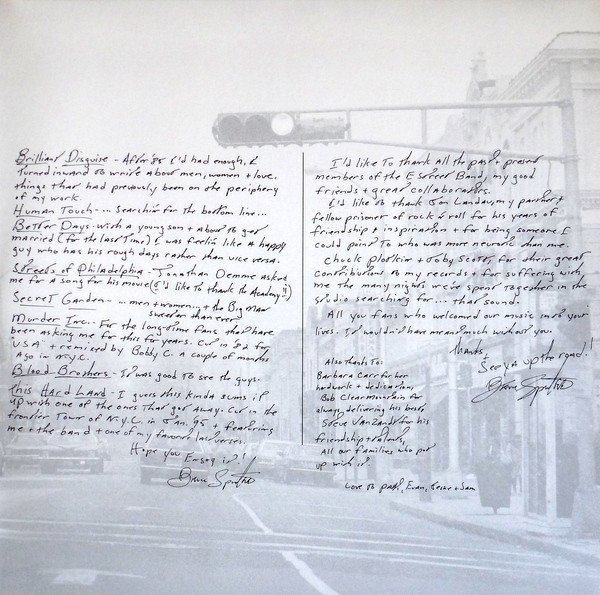 Brilliant Disguise - After '85 I'd had enough. I
turned inward to write about men, women + love.
things that had previously been on the periphery
of my work.
Human Touch -... searchin' for the bottom line...
Better Days - with a young son + about to get
married (for the last time) I was feelin' like a happy
guy who has his rough days rather than vice versa.
Streets of Philadelphia - Jonathan Demme asked
me for a song for his movie (I'd like to thank the Academy!!)
Secret Garden - ... men + women.. + the Big Man
sweeter than ever
Murder Inc. - For the long-time fans that have
been asking me for this for years. Cut in '82 for
"USA" + remixed by Bobby C. a couple of months
ago in N.Y.C.
Blood Brothers - It was good to see the guys.
This Hard Land - I guess this kinda sums it
up with one of the ones that got away. Cut in the
frontier town of N.Y.C. in Jan. 95 + featuring
me + the band + one of my favorite last verses.
Hope you Enjoy it!
Bruce Springsteen
I'd like to thank all the past + present
members of the E Street Band, my good
friends + great collaborators.
I'd like to thank Jon Landau, my partner +
fellow prisoner of rock & roll for his years of
friendship + inspiration + for being someone I
could point to who was more neurotic than me.
Chuck Plotkin + Toby Scott, for their great
contribution to my records + for suffering with
me the many nights we've spent together in the
studio searching for... that sound.
All you fans who welcomed our music into your
lives. It wouldn't have meant much without you.
thanks,
See ya up the road!!
Bruce Springsteen
Also thanks to:
Barbara Carr for her
hardwork + dedication,
Bob Clearmountain for
always delivering his best
Steve Van Zandt for his
friendship + talents,
All our families who put
up with it.
Love to Patti, Evan, Jessie + Sam